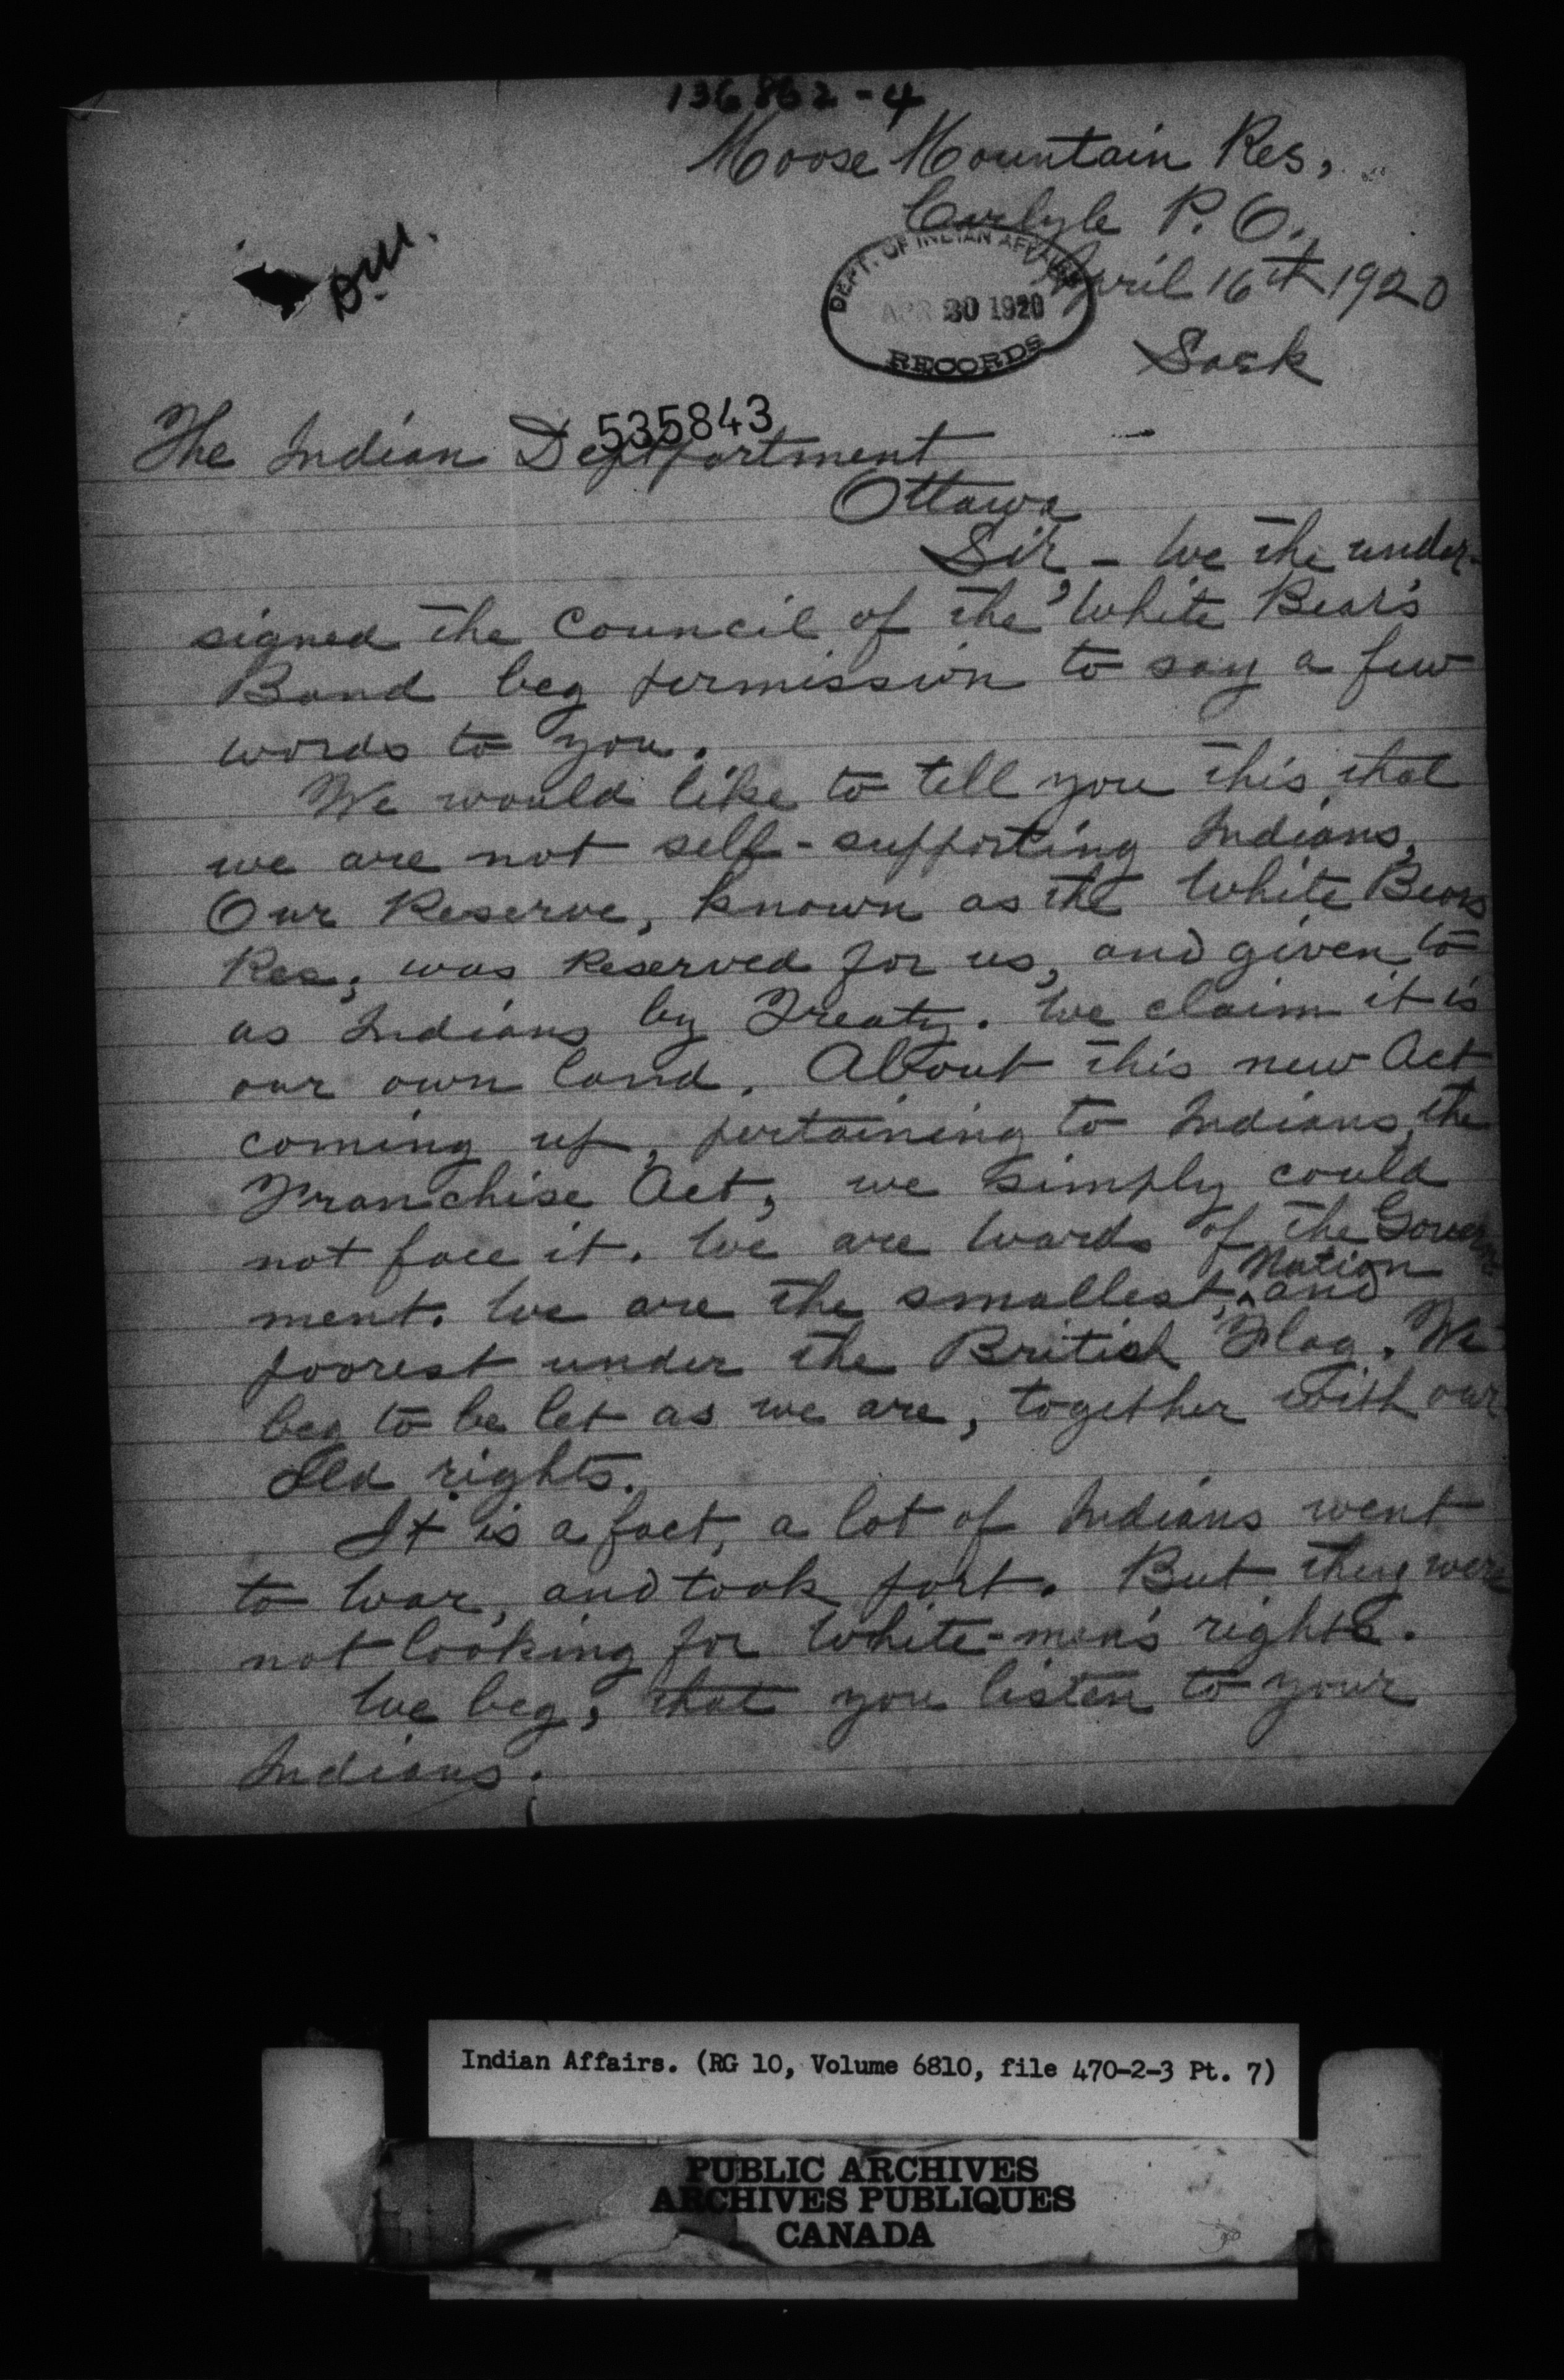 136862-4
Moose Mountain Res,
Carlyle P. O.
April 16th 1920
Sask
DEPT. OF INDIAN AFFAIRS
APR 30 1920
RECORDS
535843
The Indian Deptpartment
Ottawa
Sir, - We the under-
signed the Council of the White Bear's
Band beg permission to say a few
words to you.
We would like to tell you this, that
we are not self-supporting Indians,
Our Reserve, known as the White Bears
Res; was Reserved for us, and given to
as Indians by Treaty. We claim it is
our own land. About this new Act
coming up, pertaining to Indians, the
Franchise Act, we simply could
not face it. We are wards of the Govern
ment. We are the smallest, Nation and
poorest under the British Flag. We
beg to be let as we are, together with our
Old rights.
It is a fact, a lot of Indians went
to War, and took part. But they were
not looking for White-men's rights.
We beg, that you listen to your
Indians.
Indian Affairs. (RG 10, Volume 6810, file 470-2-3 Pt. 7)
PUBLIC ARCHIVES
ARCHIVES PUBLIQUES
CANADA